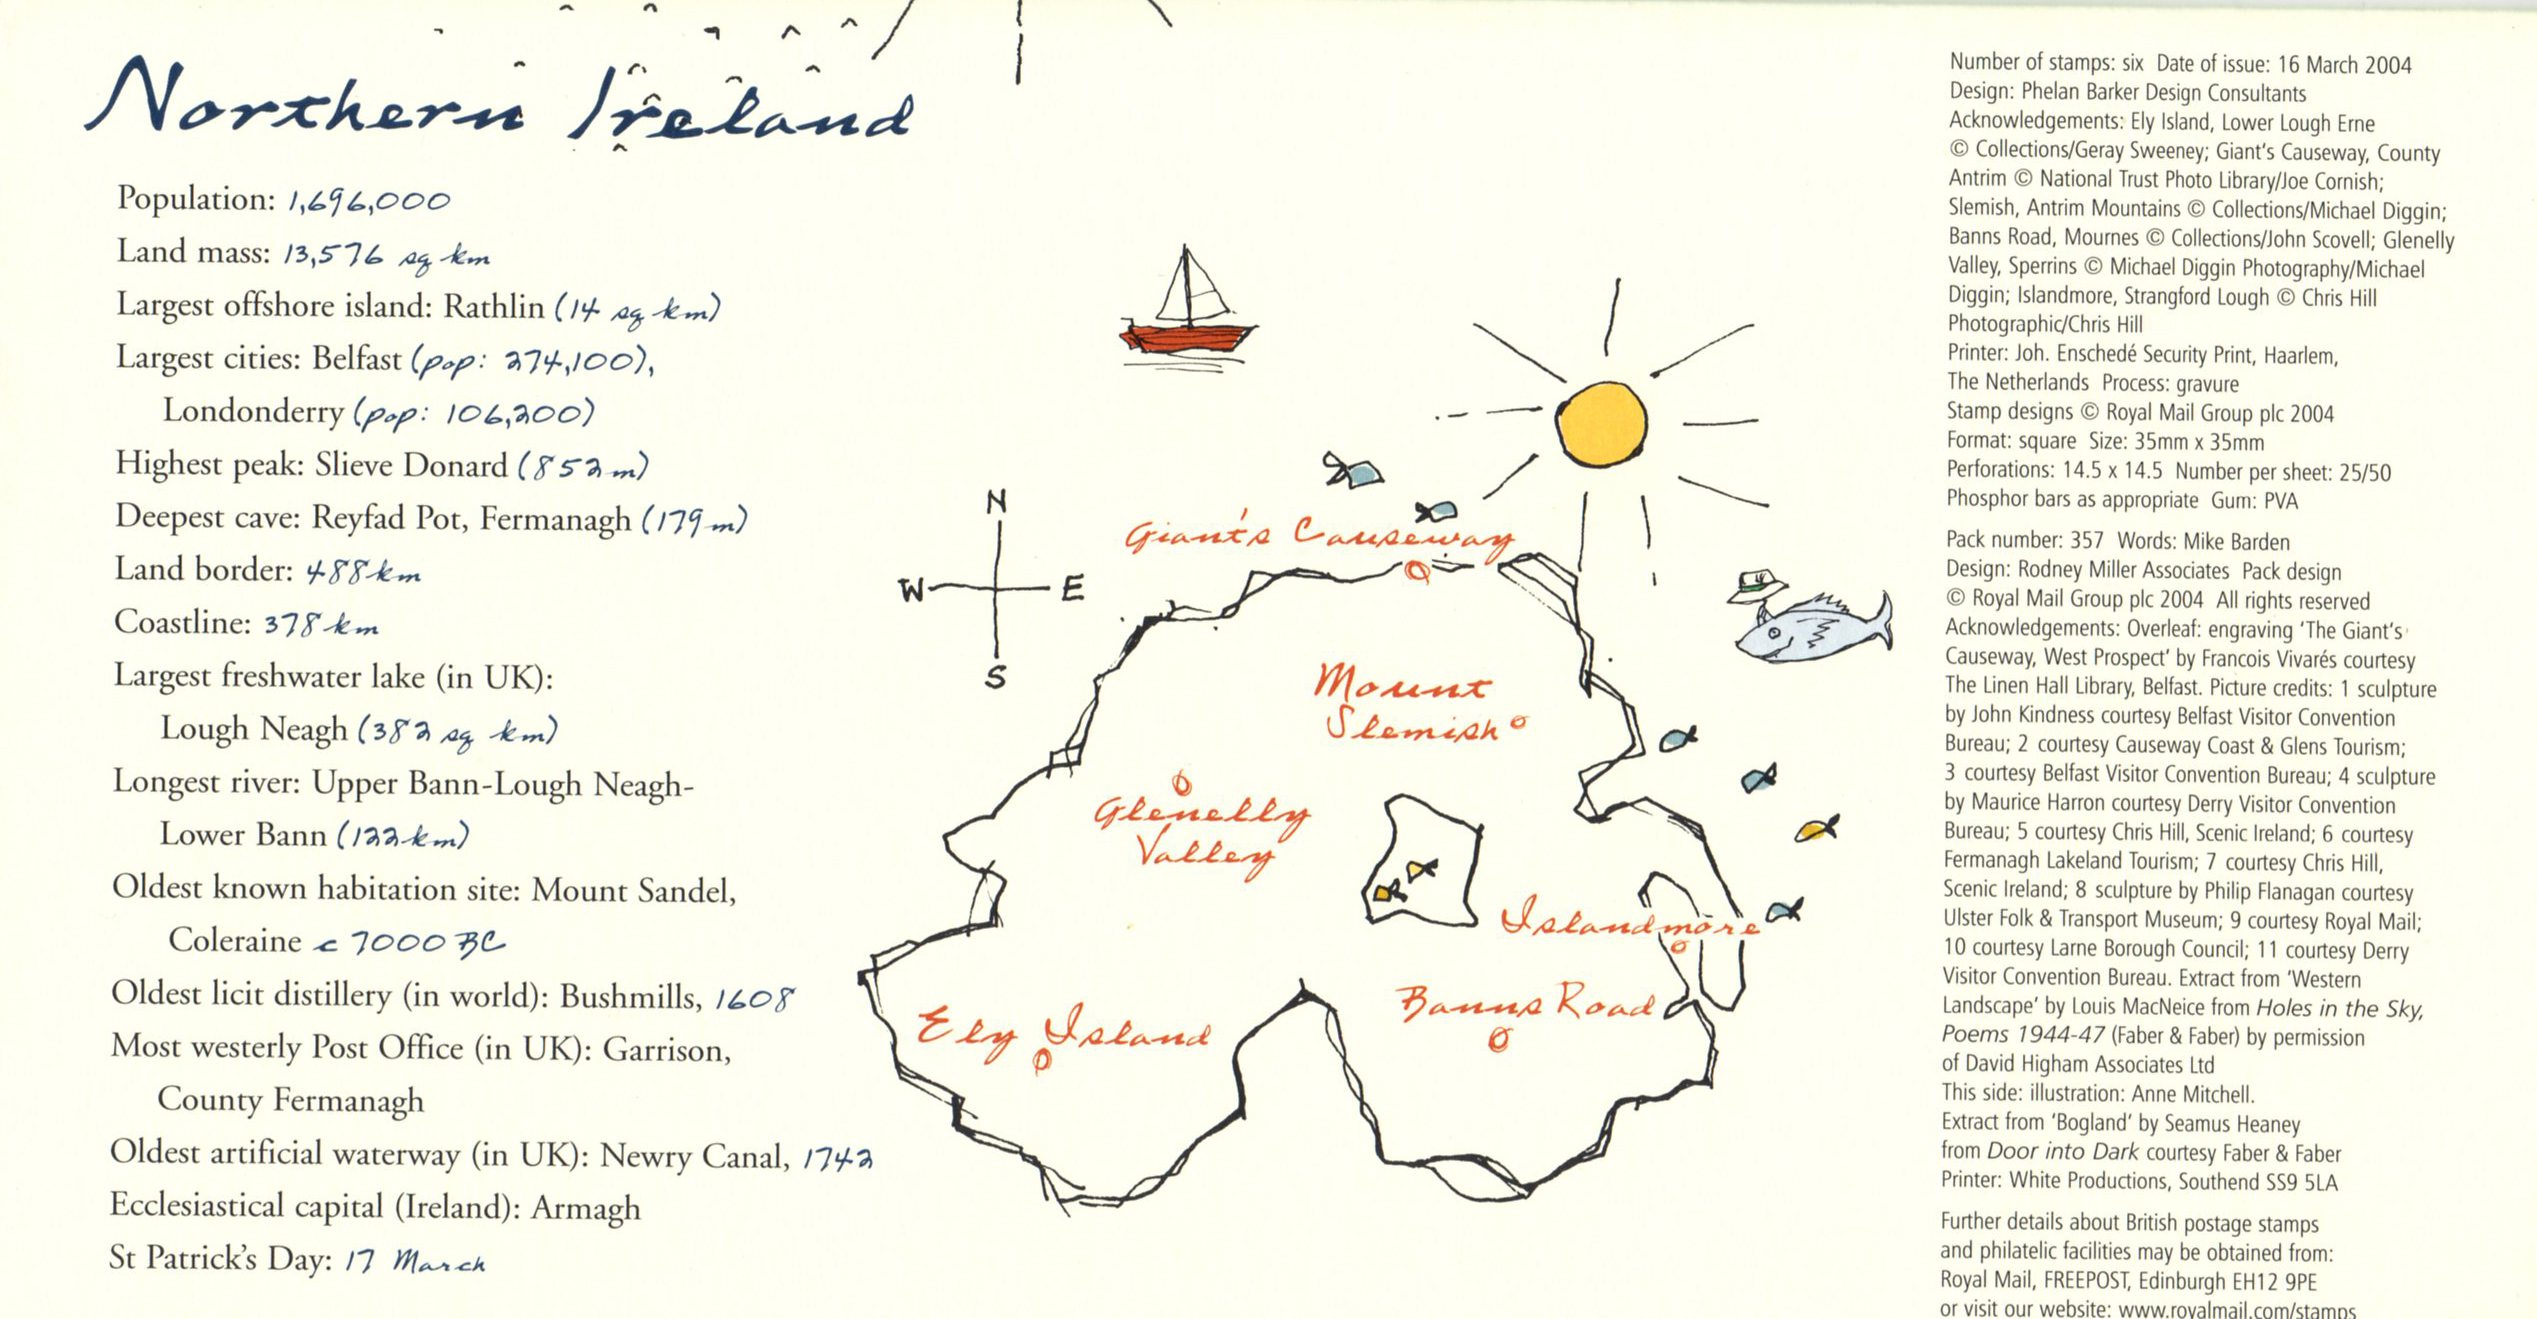 Northern Ireland
Population: 1,696,000
Land mass: 13,576 sq km
Largest offshore island: Rathlin (14 sq km)
Largest cities: Belfast (pop: 274,100),
Londonderry (pop: 106,200)
Highest peak: Slieve Donard (852m)
Deepest cave: Reyfad Pot, Fermanagh (179m)
Land border: 488km
Coastline: 378km
Largest freshwater lake (in UK):
Lough Neagh (382 sq km)
Longest river: Upper Bann-Lough Neagh-
Lower Bann (122km)
Oldest known habitation site: Mount Sandel,
Coleraine c 7000 BC
Oldest licit distillery (in world): Bushmills, 1608
Most westerly Post Office (in UK): Garrison,
County Fermanagh
Oldest artificial waterway (in UK): Newry Canal, 1742
Ecclesiastical capital (Ireland): Armagh
St Patrick's Day: 17 March
N
W E
S
Giant's Causeway
Mount
Slemish
Glenelly
Valley
Islandmore
Banns Road
Ely Island
Number of stamps: six Date of issue: 16 March 2004
Design: Phelan Barker Design Consultants
Acknowledgements: Ely Island, Lower Lough Erne
© Collections/Geray Sweeney; Giant's Causeway, County
Antrim © National Trust Photo Library/Joe Cornish;
Slemish, Antrim Mountains © Collections/Michael Diggin;
Banns Road, Mournes © Collections/John Scovell; Glenelly
Valley, Sperrins © Michael Diggin Photography/Michael
Diggin; Islandmore, Strangford Lough © Chris Hill
Photographic/Chris Hill
Printer: Joh. Enschedé Security Print, Haarlem,
The Netherlands Process: gravure
Stamp designs © Royal Mail Group plc 2004
Format: square Size: 35mm x 35mm
Perforations: 14.5 x 14.5 Number per sheet: 25/50
Phosphor bars as appropriate Gum: PVA
Pack number: 357 Words: Mike Barden
Design: Rodney Miller Associates Pack design
© Royal Mail Group plc 2004 All rights reserved
Acknowledgements: Overleaf: engraving 'The Giant's
Causeway, West Prospect' by Francois Vivarés courtesy
The Linen Hall Library, Belfast. Picture credits: 1 sculpture
by John Kindness courtesy Belfast Visitor Convention
Bureau; 2 courtesy Causeway Coast & Glens Tourism;
3 courtesy Belfast Visitor Convention Bureau; 4 sculpture
by Maurice Harron courtesy Derry Visitor Convention
Bureau; 5 courtesy Chris Hill, Scenic Ireland; 6 courtesy
Fermanagh Lakeland Tourism; 7 courtesy Chris Hill,
Scenic Ireland; 8 sculpture by Philip Flanagan courtesy
Ulster Folk & Transport Museum; 9 courtesy Royal Mail;
10 courtesy Larne Borough Council; 11 courtesy Derry
Visitor Convention Bureau. Extract from 'Western
Landscape' by Louis MacNeice from Holes in the Sky,
Poems 1944-47 (Faber & Faber) by permission
of David Higham Associates Ltd
This side: illustration: Anne Mitchell.
Extract from 'Bogland' by Seamus Heaney
from Door into Dark courtesy Faber & Faber
Printer: White Productions, Southend SS9 5LA
Further details about British postage stamps
and philatelic facilities may be obtained from:
Royal Mail, FREEPOST, Edinburgh EH12 9PE
or visit our website: www.royalmail.com/stamps